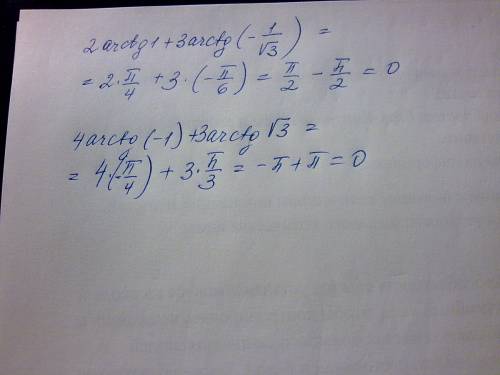 2arctg1 + 3arctg(-1/√3) =
= 2·π/4 + 3·(-π/6) = π/2 - π/2 = 0
4arctg(-1) + 3arctg√3 =
= 4·(-π/4) + 3·π/3 = -π + π = 0